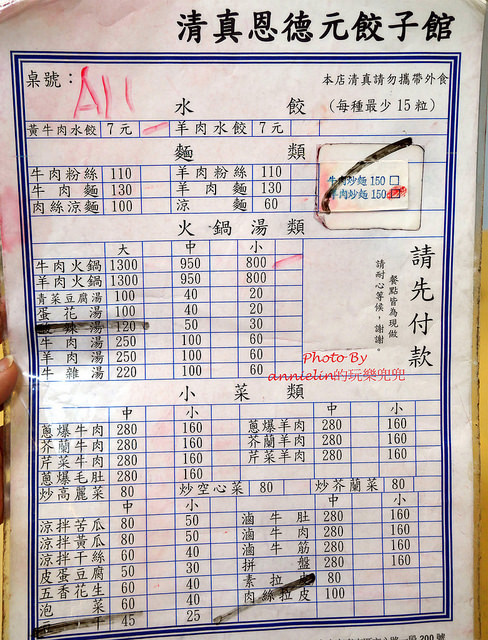 清真恩德元餃子館
桌號：A11
本店清真請勿攜帶外食
水餃 (每種最少15粒)
黃牛肉水餃 7元 羊肉水餃 7元
麵類
牛肉粉絲 110 羊肉粉絲 110
牛肉麵 130 羊肉麵 130
肉絲涼麵 100 涼麵 60
牛肉炒麵 150
羊肉炒麵 150
火鍋湯類
大 中 小
牛肉火鍋 1300 950 800
羊肉火鍋 1300 950 800
青菜豆腐湯 100 40 20
蛋花湯 100 40 20
辣湯 120 50 30
牛肉湯 250 100 60
羊肉湯 250 100 60
牛雜湯 220 100 60
請先付款
餐點皆為現做
請耐心等候，謝謝。
Photo By
annielin的玩樂兜兜
小菜類
中 小 中 小
蔥爆牛肉 280 160 蔥爆羊肉 280 160
芥蘭牛肉 280 160 芥蘭羊肉 280 160
芹菜牛肉 280 160 芹菜羊肉 280 160
蔥爆毛肚 280 160
炒高麗菜 80 炒空心菜 80 炒芥蘭菜 80
中 小 中 小
涼拌苦瓜 80 50 滷牛肚 280 160
涼拌黃瓜 80 50 滷牛肉 280 160
涼拌干絲 60 40 滷牛筋 280 160
皮蛋豆腐 50 30 拼盤 280 160
五香花生 60 40 素拉 80
泡菜 60 40 肉絲拉皮 100
45 25
200號